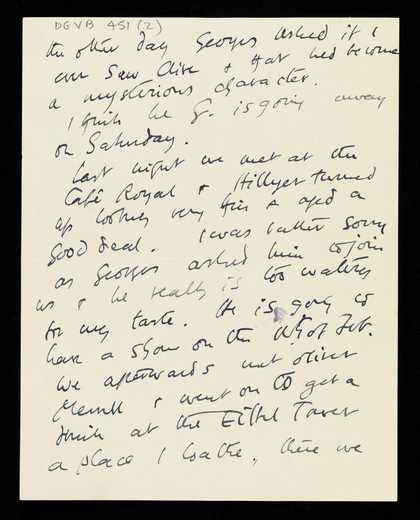 DGVB 451 (2)
the other day Georges asked if I
ever saw Clive & that he'd become
a mysterious character.
I think he G. is going away
on Saturday.
Last night we met at the
Café Royal & Hillyer turned
up looking very thin & aged a
good deal. I was rather sorry
as Georges asked him to join
us & he really is too watery
for my taste. He is going to
have a show on the of Feb.
We afterwards met Oliver
Merrill & went on to get a
drink at the Eiffel Tower
a place I loathe, there we